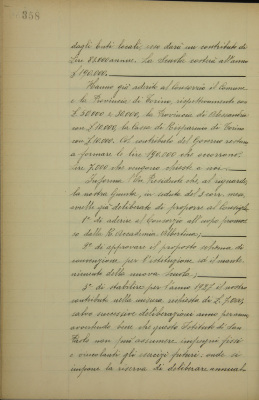 358
dagli Enti locali, non darà un contributo di
Lire 50,000 annue. La Scuola costerà all'anno
£ 190.000.
Hanno già aderito al Consorzio il Comune
e la Provincia di Torino, rispettivamente con
£ 50.000 e 30.000, la Provincia di Alessandria
con £ 10.000, la Cassa di Risparmio di Torino
con £ 10.000. Col contributo del Governo
a formare le lire 190.000 che occorrono
lire 7.000 che vengono chieste a noi.
Informa il Presidente che, al riguardo,
la nostra Giunta, in seduta del 2 corr. mese,
già deliberato di proporre al Consiglio:
1° di aderire al Consorzio all'uopo promos-
so dalla R. Accademia Albertina;
2° di approvare il proposto schema di
convenzione per l'istituzione ed il mante-
nimento della nuova Scuola;
3° di stabilire per l'anno 1927 il nostro
contributo nella misura richiesta di £ 7.000,
salvo successive deliberazioni anno per anno,
avvertendo bene che questo Istituto di San
Paolo non può assumere impegni fissi
e vincolanti gli esercizi futuri, onde si
impone la riserva di deliberare annual-